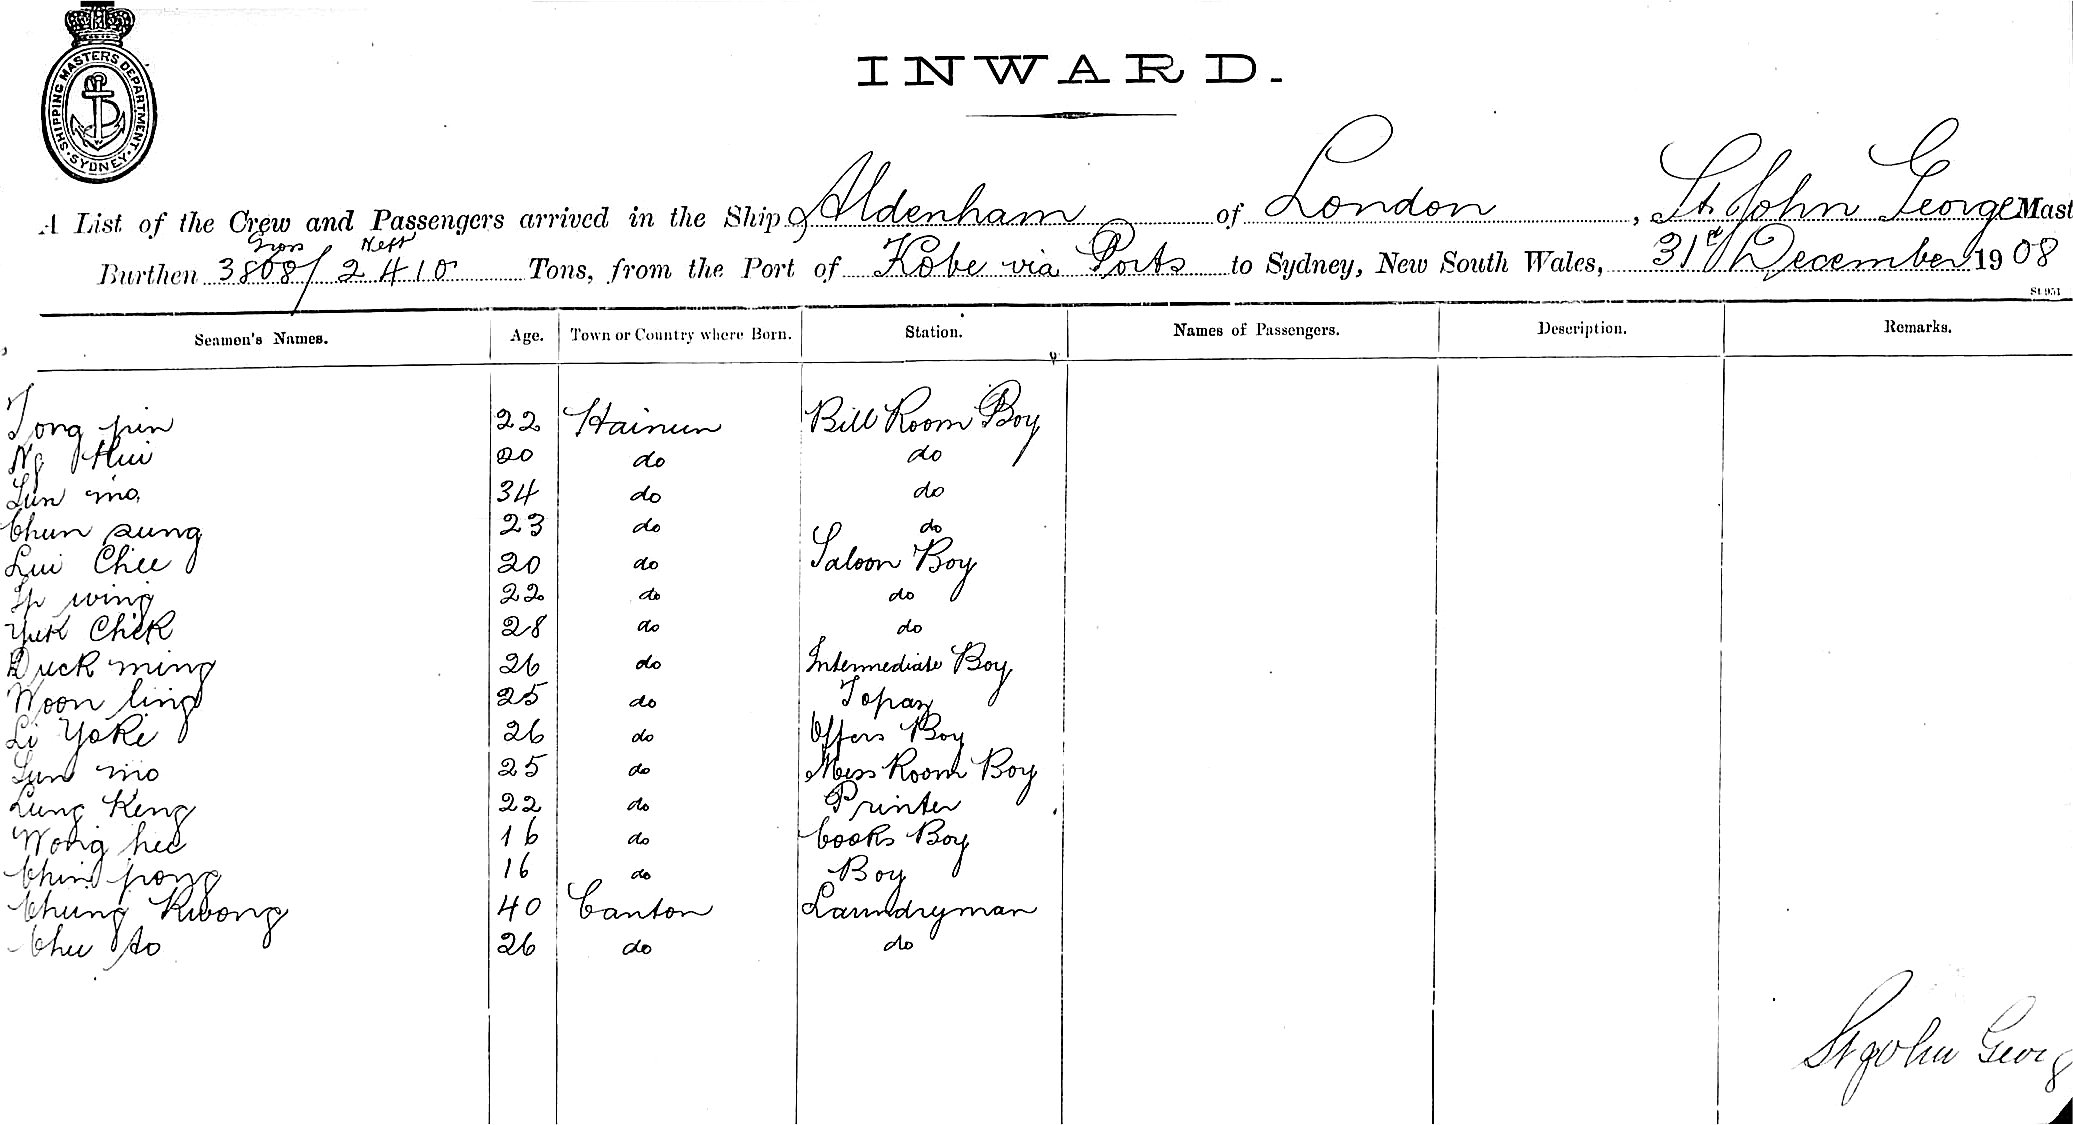 SHIPPING MASTERS DEPARTMENT
SYDNEY
INWARD.
A List of the Crew and Passengers arrived in the Ship Aldenham of London, St. John George Mast
Gross Nett
Burthen 3808/2410 Tons, from the Port of Kobe via Ports to Sydney, New South Wales, 31st December 1908
Seamen's Names. Age. Town or Country where Born. Station. Names of Passengers. Description. Remarks.
Tong pin 22 Hainun Bill Room Boy
Ng Hui 20 do do
Lun mo 34 do do
Chun sung 23 do do
Lui Chee 20 do Saloon Boy
Ip wing 22 do do
Yuk Chek 28 do do
Duck ming 26 do Intermediate Boy
Woon ling 25 do Topaz
Li Yoke 26 do Offers Boy
Lun mo 25 do Mess Room Boy
Lung Keng 22 do Printer
Wong hee 16 do Cooks Boy
Chin pong 16 do Boy
Chung Kwong 40 Canton Laundryman
Chu so 26 do do
St John Georg